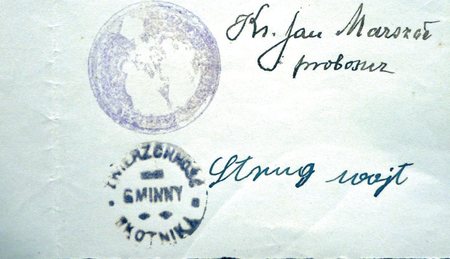 Ks. Jan Marszał
proboszcz
ZWIERZCHNOŚĆ
GMINNY
SKOTNIKA
Strug wojt